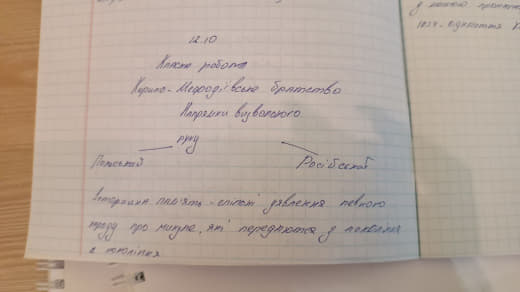 12.10
Класна робота
Кирило-Мефодіївське братство
Напрямки визвольного
руху
Польський Російський
Історична пам'ять - спільні уявлення певного
про минуле, які передаються з покоління
в покоління
1024 - відкриття